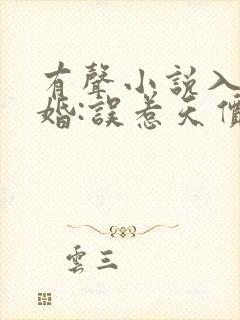 有聲小說入
婚:誤惹天價
雲三